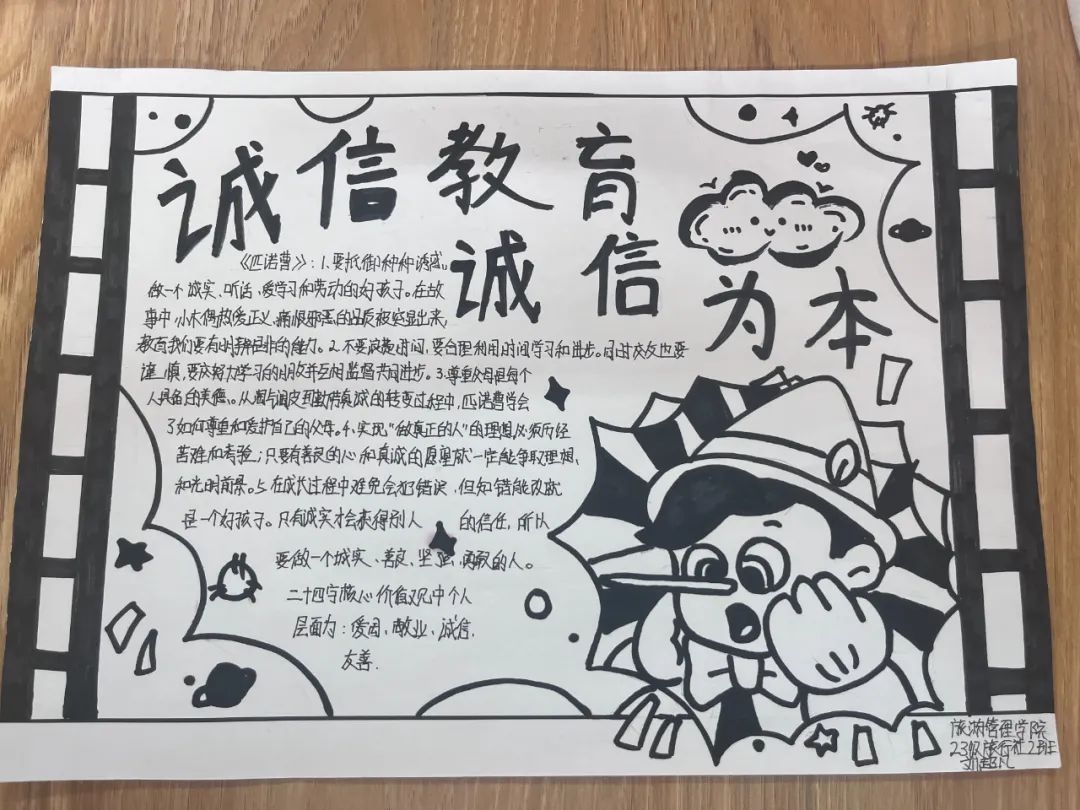 诚信教育
诚信
为本
《匹诺曹》:1.要抵御种种诱惑。
做一个诚实、听话、爱学习和劳动的好孩子。在故
事中小木偶热爱正义、痛恨邪恶的品质被突显出来,
教育我们要有明辨是非的能力。2.不要浪费时间,要合理利用时间学习和进步。同时交友也要
谨慎,要交努力学习的朋友并互相监督共同进步。3.尊重父母是每个
人具备的美德。从调皮到真诚的转变过程中,匹诺曹学会
了如何尊重和爱护自己的父母。4.实现“做真正的人”的理想,必须历经
苦难和考验;只要有善良的心和真诚的愿望就一定能争取理想
和光明前景。5.在成长过程中难免会犯错误,但知错能改就
是一个好孩子。只有诚实才会获得别人的信任,所以
要做一个诚实、善良、坚强、勇敢的人。
二十四字核心价值观中个人
层面为:爱国、敬业、诚信
友善.
旅游管理学院
23级旅行社2班